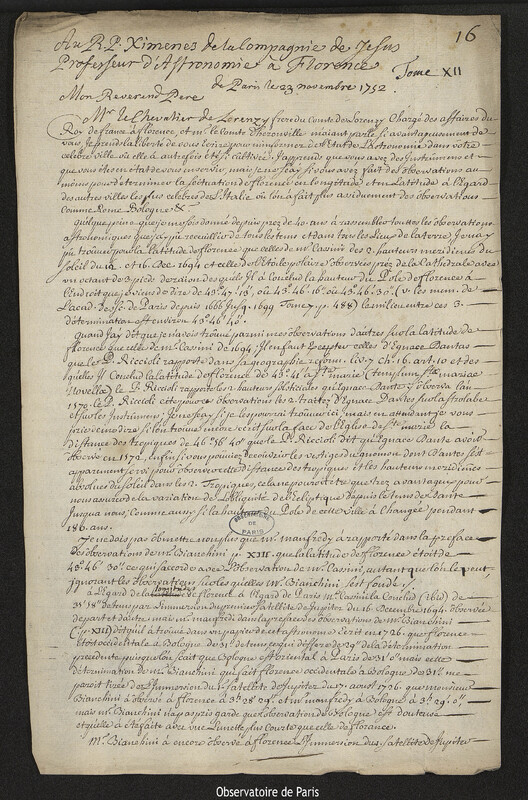 16
Au R. P. Ximenes de la Compagnie de Jesus
Professeur d'Astronomie à Florence
Tome XII
de Paris le 23 novembre 1752.
Mon Reverend Pere
Mr. le Chevalier de Lorenzy frere du Comte de Lorenzy Chargé des affaires du
Roy de france à florence, et mr. le Comte m'aiant parlé si avantageusement de
vous, je prends la liberté de vous écrire pour m'informer de l'état de l'Astronomie dans votre
celebre ville où elle a autrefois été si cultivée. J'apprens que vous avez des Instrumens et
que vous étes en état de vous en servir, mais je ne sçai si vous avez fait des observations au
moins pour determiner la situation de florence en longitude et en latitude à l'égard
des autres villes les plus celebres de l'Italie où l'on a fait plus assiduement des observations
comme Rome Bologne &c.
quelque peine que je me sois donné depuis près de 40 ans à rassembler toutes les observations
astronomiques que j'ai pu recueillir de tous les tems et dans tous les Lieux de la terre, Je n'ay
pu trouver pour la latitude de florence que celles de mr. Cassini des 2. hauteurs meridienes du
Soleil du et 16. Dec. 1694 et celle de l'étoile polaire observée près de la Cathedrale avec
un octant de 3 pieds de raion desquels il a conclud la hauteur du Pole de florence à
l'endroit que je viens de dire de 43°. 47'. 13" où 43°. 46'. 16" où 43°. 46'. 30". (V. les mem. de
l'acad. des Sc. de Paris depuis 1666 jusq. 1699 Tome 7 p. 488) le milieu entre ces 3.
determination est environ 43°. 46'. 40".
quand j'ay dit que je n'avois trouvé parmi mes observations d'autres sur la latitude de
florence que celles de mr. Cassini de 1694. il en faut excepter celles d'Egnace Dantes
que le P. Riccioli rapporte dans sa geographie reform. liv. 7 ch. 16. art. 10 et des
quelles il conclud la latitude de florence de 43°. 41' à Ste. marie (templum Stae. mariae
Novellae) le P. Riccioli rapporte les 2 hauteurs solsticiales qu'Egnace Dante y observa l'an
1570. le P. Riccioli cite pour ces observations les 2 traitez d'Egnace Dantes sur l'astrolabe
et sur les Instrumens; Je ne sçay si je les pourrai trouver ici, mais en attendant je vous
prie de me dire si l'on trouve encore écrit sur la face de l'Eglise de Ste. marie la
distance des tropiques de 46° 56' 40" que le P. Riccioli dit qu'Egnace Dante avoit
observé en 1572, Enfin si vous pouviez découvrir les vestiges du gnomon dont Dantes s'est
apparemment servi pour observer cette distance des tropiques et les hauteurs meridienes
absolues du soleil dans les 2. Tropiques, cela ne pourra être que très avantageux pour
nous assurer de la variation de l'obliquité de l'écliptique depuis le tems de Dante
Jusqu'à nous, comme aussi si la hauteur du Pole de cette ville à Changée pendant
186. ans.
OBSERVATOIRE DE PARIS
Je ne dois pas obmettre non plus que mr. manfredy a rapporté dans la preface
des observations de mr. Bianchini p. XIII. que la latitude de florence étoit de
43°. 46'. 30". ce qui s'accorde avec l'observation de mr. Cassini, autant que l'on le peut,
ignorant les observations sur les quelles mr. Bianchini s'est fondé.
à l'égard de la longitude de florence à l'égard de Paris mr. Cassini la conclud (Ibid) de
31'. 58" de tems par l'immersion du premier satellite de Jupiter du 16. Decembre 1694. observée
de part et d'autre mais mr. manfredy dans la preface des observations de mr. Bianchini
(p. XIII) dit qu'il à trouvé dans un papier de cet astronome écrit en 1726. que florence
étoit occidentale à Bologne de 31" de tems ce qui differe de de la determination
precedente puisque l'on sçait que Bologne est oriental à Paris de mais cette
determination de mr. Bianchini qui fait florence occidentale à Bologne de 31" me
paroit tirée de l'Immersion du 1 satellite de Jupiter du 17. aoust 1726. que monsieur
Bianchini à observé à florence à 3h. 28'. et mr. manfredy à Bologne à 3h. 29'. 0"
mais mr. Bianchini n'a pas pris garde que l'observation de Bologne est douteuse
et qu'elle a été faite avec une lunette plus courte que celle de florence.
Mr. Bianchini à encore observé à florence l'Immersion du 1 satellite de Jupiter
Observatoire de Paris